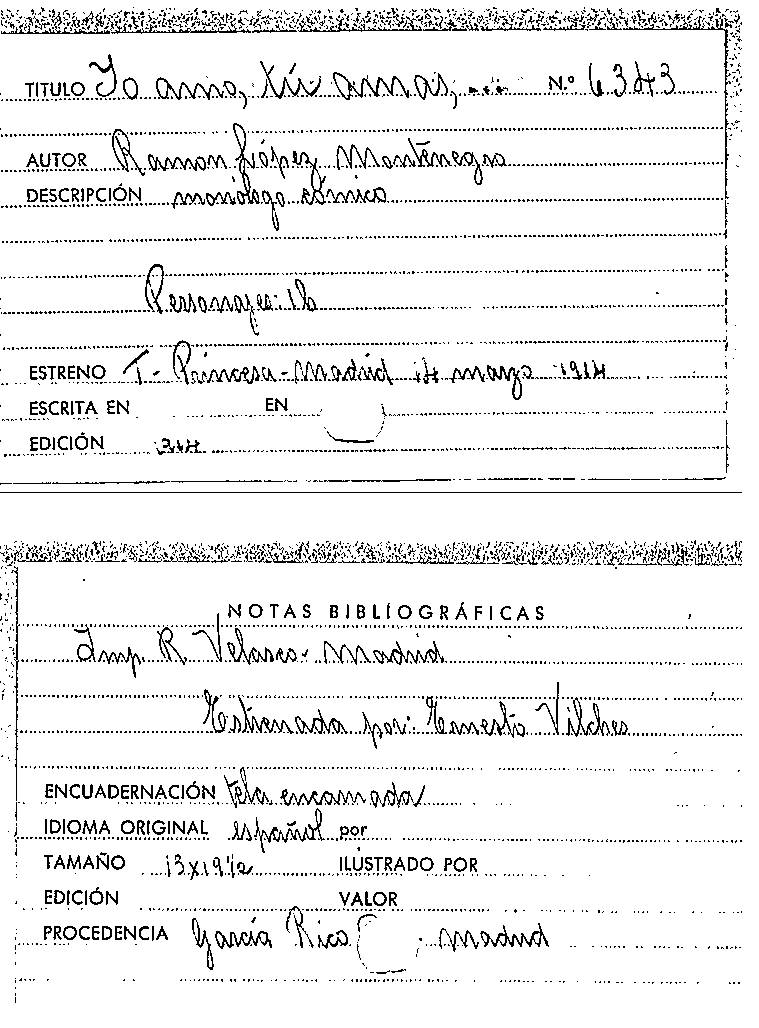 TITULO Yo amo, tú amas, ... N.º 6343
AUTOR Ramon López Montenegro
DESCRIPCIÓN monólogo cómico
Personajes: 1h
ESTRENO T- Princesa - Madrid 14 marzo 1914
ESCRITA EN EN
EDICIÓN
NOTAS BIBLÍOGRÁFICAS
Imp. R. Velasco - Madrid
Estrenada por: Ernesto Vilches
ENCUADERNACIÓN tela encarnada
IDIOMA ORIGINAL español por
TAMAÑO 13x19½ ILUSTRADO POR
EDICIÓN VALOR
PROCEDENCIA García Rico Madrid